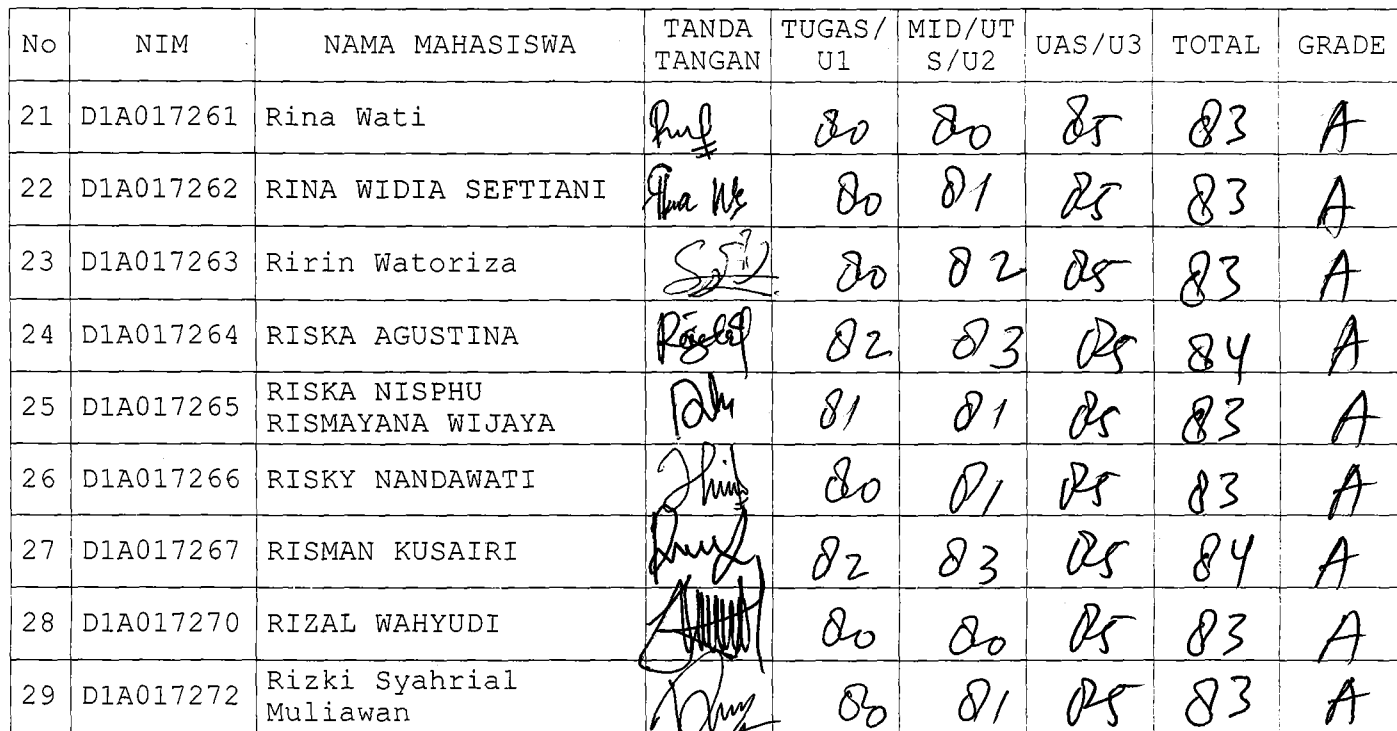 No NIM NAMA MAHASISWA TANDA TANGAN TUGAS/ U1 MID/UT S/U2 UAS/U3 TOTAL GRADE
21 D1A017261 Rina Wati 80 80 85 83 A
22 D1A017262 RINA WIDIA SEFTIANI 80 81 85 83 A
23 D1A017263 Ririn Watoriza 80 82 85 83 A
24 D1A017264 RISKA AGUSTINA 82 83 85 84 A
25 D1A017265 RISKA NISPHU RISMAYANA WIJAYA 81 81 85 83 A
26 D1A017266 RISKY NANDAWATI 80 81 85 83 A
27 D1A017267 RISMAN KUSAIRI 82 83 85 84 A
28 D1A017270 RIZAL WAHYUDI 80 80 85 83 A
29 D1A017272 Rizki Syahrial Muliawan 80 81 85 83 A